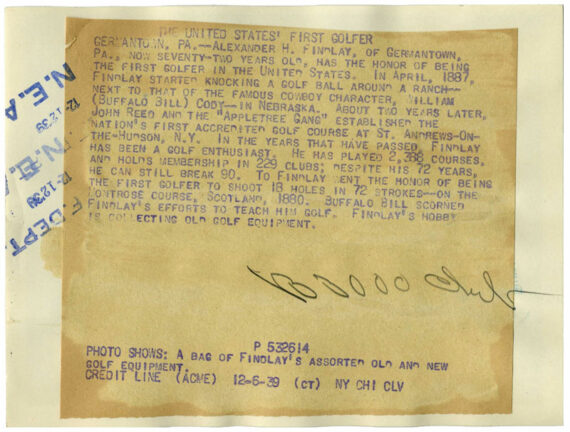 THE UNITED STATES' FIRST GOLFER
GERMANTOWN, PA.--ALEXANDER H. FINDLAY, OF GERMANTOWN,
PA., NOW SEVENTY-TWO YEARS OLD, HAS THE HONOR OF BEING
THE FIRST GOLFER IN THE UNITED STATES. IN APRIL, 1887,
FINDLAY STARTED KNOCKING A GOLF BALL AROUND A RANCH--
NEXT TO THAT OF THE FAMOUS COWBOY CHARACTER, WILLIAM
(BUFFALO BILL) CODY--IN NEBRASKA. ABOUT TWO YEARS LATER,
JOHN REED AND THE "APPLETREE GANG" ESTABLISHED THE
NATION'S FIRST ACCREDITED GOLF COURSE AT ST. ANDREWS-ON-
THE-HUDSON, N.Y. IN THE YEARS THAT HAVE PASSED, FINDLAY
HAS BEEN A GOLF ENTHUSIAST. HE HAS PLAYED 2,388 COURSES,
AND HOLDS MEMBERSHIP IN 229 CLUBS; DESPITE HIS 72 YEARS,
HE CAN STILL BREAK 90. TO FINDLAY WENT THE HONOR OF BEING
THE FIRST GOLFER TO SHOOT 18 HOLES IN 72 STROKES--ON THE
MONTROSE COURSE, SCOTLAND, 1880. BUFFALO BILL SCORNED
FINDLAY'S EFFORTS TO TEACH HIM GOLF. FINDLAY'S HOBBY
IS COLLECTING OLD GOLF EQUIPMENT.
N.E.A
12-12-39
F. DEPT.
P 532614
PHOTO SHOWS: A BAG OF FINDLAY'S ASSORTED OLD AND NEW
GOLF EQUIPMENT.
CREDIT LINE (ACME) 12-6-39 (CT) NY CHI CLV